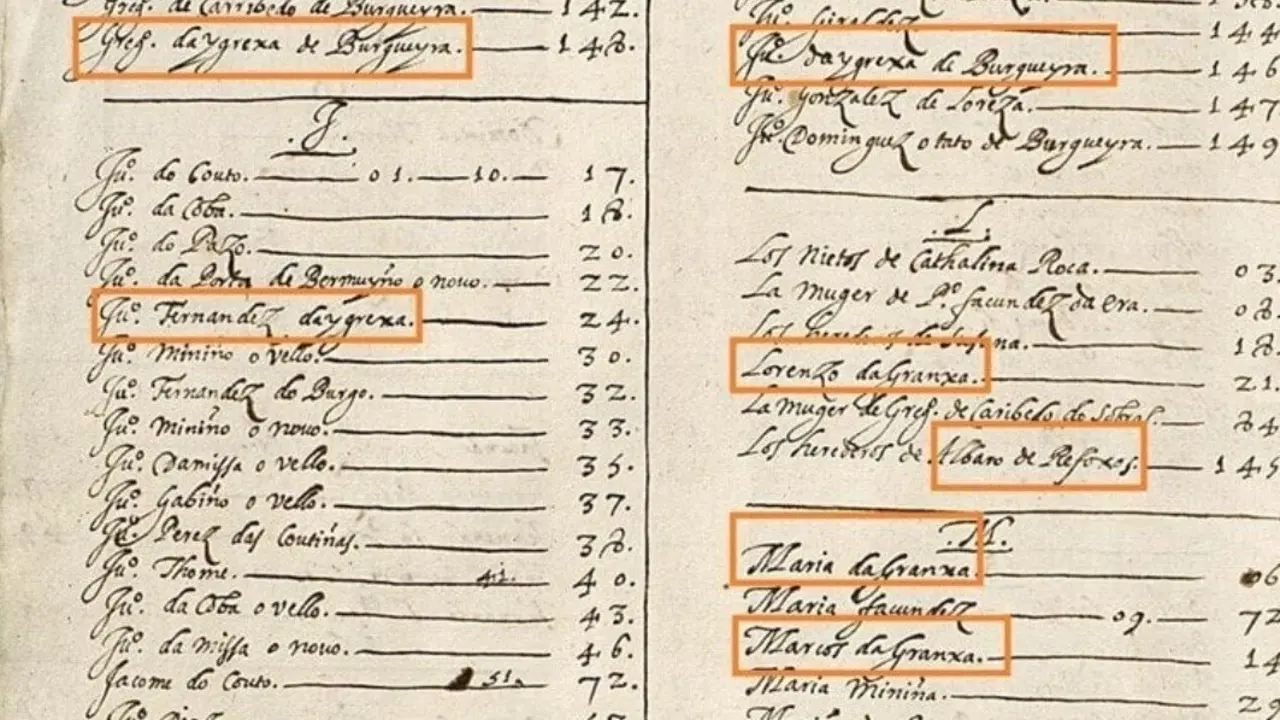 Gregº. de Carribedo de Burgueyra. 142.
Gregº. daygrexa de Burgueyra. 148.
.J.
Juº. do Couto. 01. 10. 17.
Juº. da Coba. 18.
Juº. do Pazo. 20.
Juº. da Porta de Bermuyño o novo. 22.
Juº. Fernandez daygrexa. 24.
Juº. Miniño o vello. 30.
Juº. Fernandez do Burgo. 32.
Juº. Miniño o novo. 33.
Juº. Damissa o vello. 35.
Juº. Gabiño o vello. 37.
Juº. Perez das Coutiñas. 38.
Juº. Thome. 41. 40.
Juº. da Coba o vello. 43.
Juº. da Missa o novo. 46.
Jacome do Couto. 51. 72.
Juº. Giraldez 144
Juº. daygrexa de Burgueyra. 146
Juº. Gonzalez de Loreza. 147
Juº. Dominguez o tato de Burgueyra. 149
.L.
Los Nietos de Cathalina Roca. 03
La Muger de Pº. facundez da Era. 08
Los herederos de 18
Lorenzo da Granxa. 21
La Muger de Gregº. de Caribedo do Sobral. 84
Los herederos de Albaro de Refoxos. 145
.M.
Maria da Granxa. 06
Maria facundez 09. 72
Marcos da Granxa. 14
Maria Miniña. 29